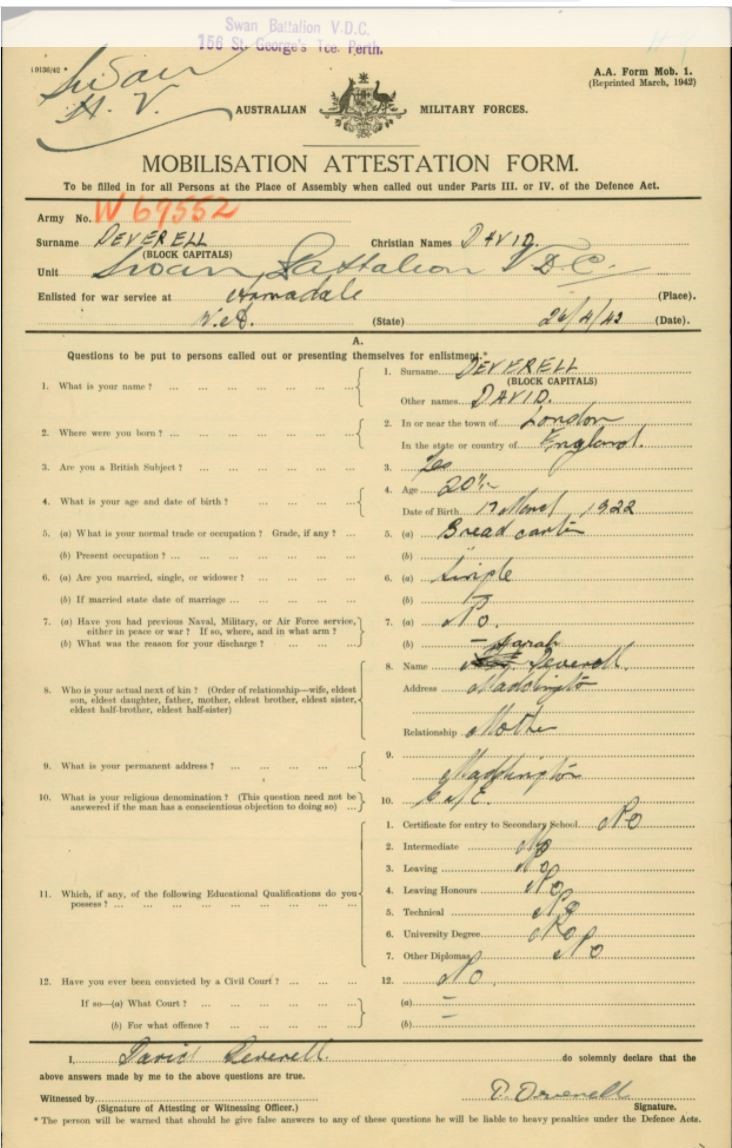 Swan Battalion V.D.C.
156 St. George's Tce. Perth.
Swan
H. V.
A.A. Form Mob. 1.
(Reprinted March, 1942)
AUSTRALIAN MILITARY FORCES.
MOBILISATION ATTESTATION FORM.
To be filled in for all Persons at the Place of Assembly when called out under Parts III. or IV. of the Defence Act.
Army No. W69552
Surname DEVERELL Christian Names DAVID.
(BLOCK CAPITALS)
Unit Swan Battalion V.D.C.
Enlisted for war service at Armadale (Place).
W.A. (State) 26/4/42 (Date).
A.
Questions to be put to persons called out or presenting themselves for enlistment.*
1. What is your name ? ... 1. Surname DEVERELL
(BLOCK CAPITALS)
Other names DAVID.
2. Where were you born ? ... 2. In or near the town of London
In the state or country of England.
3. Are you a British Subject ? ... 3. Yes
4. What is your age and date of birth ? ... 4. Age 20
Date of Birth 17 March 1922
5. (a) What is your normal trade or occupation ? Grade, if any ? ... 5. (a) Bread carter
(b) Present occupation ? ... (b)
6. (a) Are you married, single, or widower ? ... 6. (a) Single
(b) If married state date of marriage ... (b) –
7. (a) Have you had previous Naval, Military, or Air Force service, 7. (a) No.
either in peace or war ? If so, where, and in what arm ?
(b) What was the reason for your discharge ? ... (b) –
8. Who is your actual next of kin ? (Order of relationship—wife, eldest
son, eldest daughter, father, mother, eldest brother, eldest sister,
eldest half-brother, eldest half-sister)
8. Name Sarah Deverell.
Address Maddington
Relationship Mother
9. What is your permanent address ? ... 9. Maddington
10. What is your religious denomination ? (This question need not be
answered if the man has a conscientious objection to doing so) ... 10. C of E.
11. Which, if any, of the following Educational Qualifications do you
possess ? ...
1. Certificate for entry to Secondary School No
2. Intermediate No
3. Leaving No
4. Leaving Honours No
5. Technical No
6. University Degree No
7. Other Diplomas No
12. Have you ever been convicted by a Civil Court ? ... 12. No.
If so—(a) What Court ? ... (a) –
(b) For what offence ? ... (b) –
I, David Deverell. do solemnly declare that the
above answers made by me to the above questions are true.
Witnessed by D. Deverell
(Signature of Attesting or Witnessing Officer.) Signature.
* The person will be warned that should he give false answers to any of these questions he will be liable to heavy penalties under the Defence Acts.